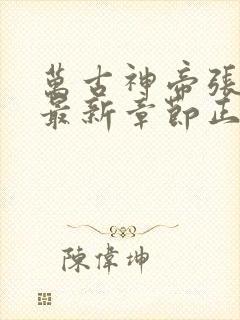 萬古神帝張
最新章節正
陳偉坤